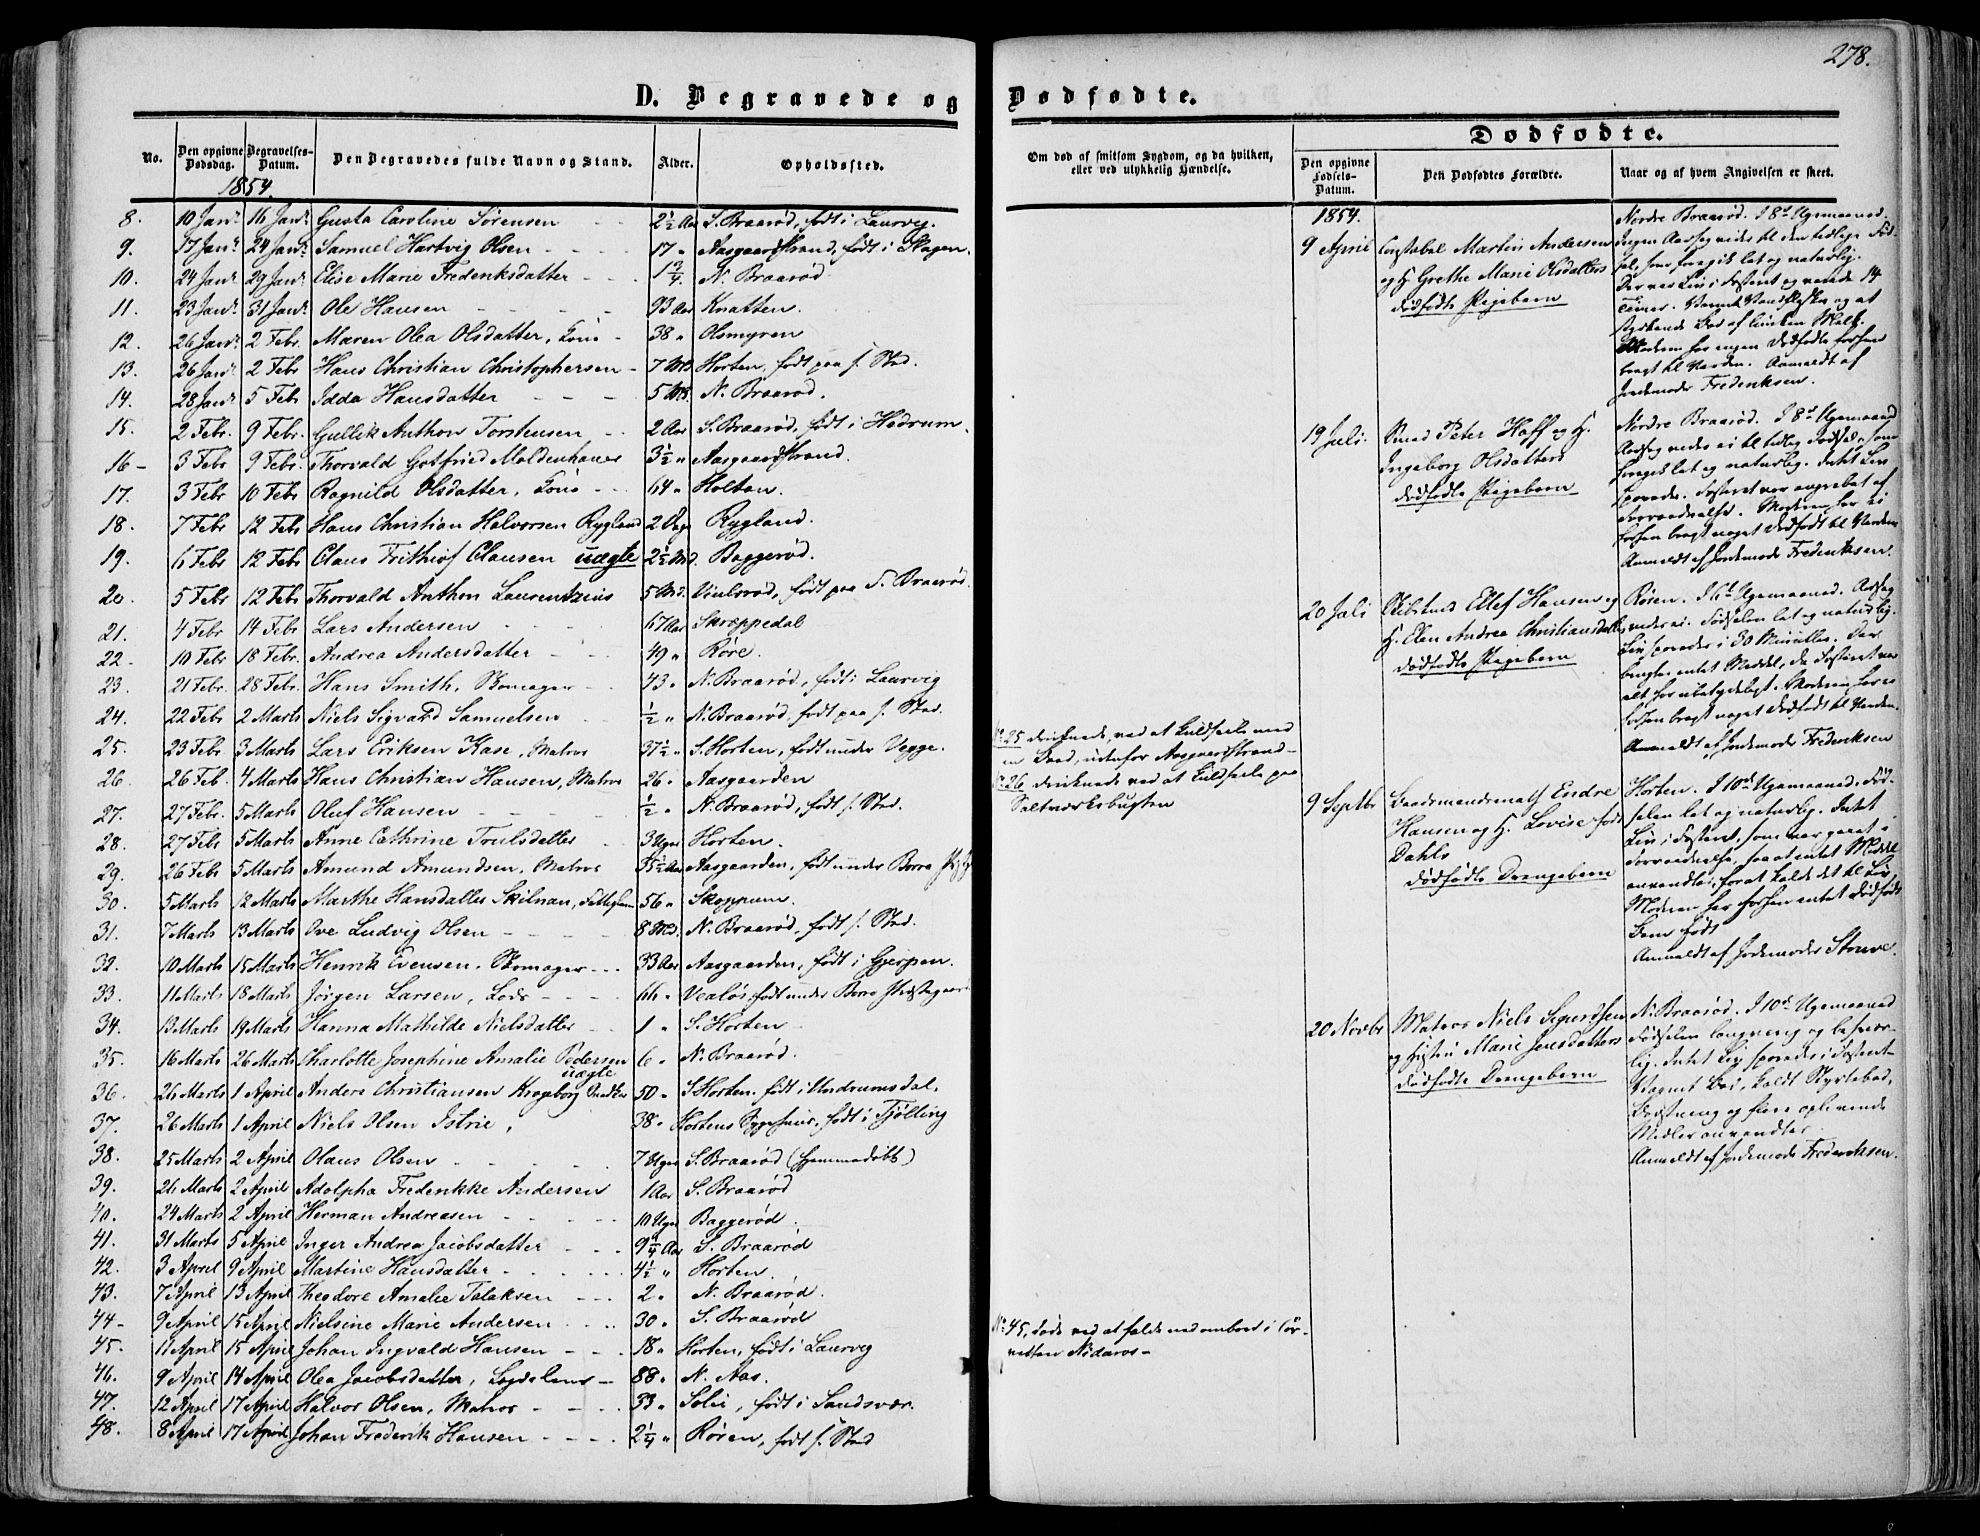 278.
D. Begravede og Dødfødte.
No.
Den opgivne Dødsdag.
Begravelses-Datum.
Den Begravedes fulde Navn og Stand.
Alder.
Opholdssted.
1854.
8. 10 Jan. 16 Jan. Gusta Caroline Sørensen 2½ Aar S. Braarød, født i Laurvig.
9. 17 Jan. 24 Jan. Samuel Hartvig Olsen 17 " Aasgaardstrand, født i Skagen.
10. 24 Jan. 29 Jan. Elise Marie Frederiksdatter N. Braarød
11. 23 Jan. 31 Jan. Ole Hansen 93 Aar Knatten.
12. 26 Jan. 2 Febr. Maren Olea Olsdatter, Kone 38 " Olsmyren
13. 26 Jan. 2 Febr Hans Christian Christophersen 7 Md Horten, født paa s. Sted.
14. 28 Jan. 5 Febr Idda Hansdatter 5 Md. N. Braarød.
15. 2 Febr. 9 Febr. Gullik Anthon Torstensen 2 Aar S. Braarød, født i Hedrum.
16 3 Febr 9 Febr. Thorvald Gotfried Moldenhauer 3½ " Aasgaardstrand.
17. 3 Febr 10 Febr Ragnild Olsdatter, Kone 64 " Holtan.
18. 7 Febr 12 Febr Hans Christian Halvorsen Rygland 2 Dage Rygland.
19. 6 Febr 12 Febr Claus Frithiof Clausen uægte 2½ Md. Baggerød.
20. 5 Febr 12 Febr Thorvald Anthon Laurentzius 5 Md. født paa S. Braarød.
21. 4 Febr 14 Febr Lars Andersen 67 Aar Skreppedal
22. 10 Febr 18 Febr. Andrea Andersdatter 49 " Røre.
23. 21 Febr. 28 Febr. Hans Smith, Skomager 43 " N. Braarød, født i Laurvig
24. 22 Febr 2 Marts Niels Sigvard Samuelsen ½ " N. Braarød, født paa s. Sted.
25. 23 Febr 3 Marts Lars Eriksen Kase, Matros 37½ " S. Horten, født under Vegge.
26. 26 Feb. 4 Marts Hans Christian Hansen, Matros 26 " Aasgaarden
27. 27 Febr. 5 Marts Oluf Hansen ½ " N. Braarød, født s. Sted.
28. 27 Febr 5 Marts Anne Cathrine Trulsdatter 3 Uger Horten.
29. 26 Febr 5 Marts Amund Amundsen, Matros 35½ Aar Aasgaarden, født under Borre
30. 5 Marts 12 Marts Marthe Hansdatter Skilnan, Fattiglem 56 " Skoppum.
31. 7 Marts 13 Marts Ove Ludvig Olsen 8 Md. N. Braarød, født s. Sted.
32. 10 Marts 15 Marts Henrik Evensen, Skomager 33 Aar Aasgaarden, født i Gjerpen.
33. 11 Marts 18 Marts Jørgen Larsen, Lods 66 " Vealøs, født under Borre Præstegaard
34. 13 Marts 19 Marts Hanna Mathilde Nielsdatter 1 " S. Horten
35. 16 Marts 26 Marts Charlotte Josephine Amalie Pedersen uægte 6 " N. Braarød.
36. 26 Marts 1 April Anders Christiansen Krogeborg Snedker 50 " S. Horten, født i Undrumsdal.
37. 26 Marts 1 April Niels Olsen Istrie, 38 " Hortens Sygehuus, født i Tjølling
38. 25 Marts 2 April Olaus Olsen 7 Uger S. Braarød (hjemmedøbt)
39. 26 Marts 2 April Adolpha Frederikke Andersen 1 Aar S. Braarød
40. 24 Marts 2 April Herman Andreasen 10 Uger Baggerød
41. 31 Marts 5 April Inger Andrea Jacobsdatter 9¼ Aar S. Braarød
42. 3 April 9 April Martine Hansdatter 4½ " Horten.
43. 7 April 13 April Theodore Amalie Falaksen 2 " N. Braarød.
44 9 April 15 April Nielsine Marie Andersen 30 " S. Braarød
45. 11 April 15 April Johan Ingvald Hansen 18 " Horten, født i Laurvig
46. 9 April 14 April Olea Jacobsdatter, Lægdslem 88 " N. Aas.
47. 12 April 17 April Halvor Olsen, Matros 33 " Solie, født i Sandsvær.
48. 8 April 17 April Johan Frederik Hansen 2¼ " Røren, født s. Sted
Om død af smitsom Sygdom, og da hvilken, eller ved ulykkelig Hændelse.
No. 25 druknede, ved at kuldseile med
en Baad, udenfor Aasgaardstrand
No. 26 druknede ved at kuldseile paa
Saltværksbugten
No. 45, døde ved at falde ned ombord i Cor-
vetten Nidaros
Dødfødte.
Den opgivne Fødsels-Datum.
Den Dødfødtes Forældre.
Naar og af hvem Angivelsen er skeet.
1854.
9 April
Constabel Martin Andersen
og H. Grethe Marie Olsdatters
dødfødte Pigebarn
Nordre Braarød. I 8d Ugemaaned.
Ingen Aarsag vides til den tidlige Fød-
sel, som foregik let og naturlig.
Der var Liv i Fosteret og varede 14
Timer.
styrkende Bad af
Moderen har ingen dødfødte forhen
bragt til Verden. Anmeldt af
Jordemoder Frederiksen.
19 Juli.
Knud Peter Hoff og H.
Ingeborg Olsdatters
dødfødte Pigebarn
Nordre Braarød. I 8d Ugemaaned
Aarsag vides ei til tidlig Fødsel, som
foregik let og naturlig. Intet Liv
sporedes. Fosteret var angrebet af
Forraadnelse. Moderen har ei
forhen bragt noget dødfødt til Verden
Anmeldt af Jordemoder Frederiksen.
20 Juli
Ellef Hansen og
H. Elen Andrea Christiansdatters
dødfødte Pigebarn
Røren. I 6d Ugemaaned. Aarsag
vides ei. Fødselen let og naturlig.
Liv sporedes i 30 Minutter. Der
brugtes intet Middel, da Fosteret var
alt for ubetydeligt. Moderen har ei
forhen bragt noget dødfødt til Verden.
Anmeldt af Jordemoder Frederiksen
9 Septbr
Baadsmandsmath Endre
Hansen og H. Lovise født
Dahls
dødfødte Drengebarn
Horten. I 10d Ugemaaned. Fød-
selen let og naturlig. Intet
Liv i Fosteret, som var gaaet i
Forraadnelse, saa at intet Middel
anvendtes, for at kalde det til Liv
Moderen har forhen intet dødfødt
Barn født
Anmeldt af Jordemoder Struve.
20 Novbr
Matros Niels Sigurdsen
og Hustru Marie Jensdatters
dødfødte Drengebarn
N. Braarød. I 10d Ugemaaned
Fødselen langvarig og besvær-
lig. Intet Liv sporedes i Fosteret
Varmt Bad, koldt Styrtebad,
Børstning og flere oplivende
Midler anvendtes
Anmeldt af Jordemoder Frederiksen.